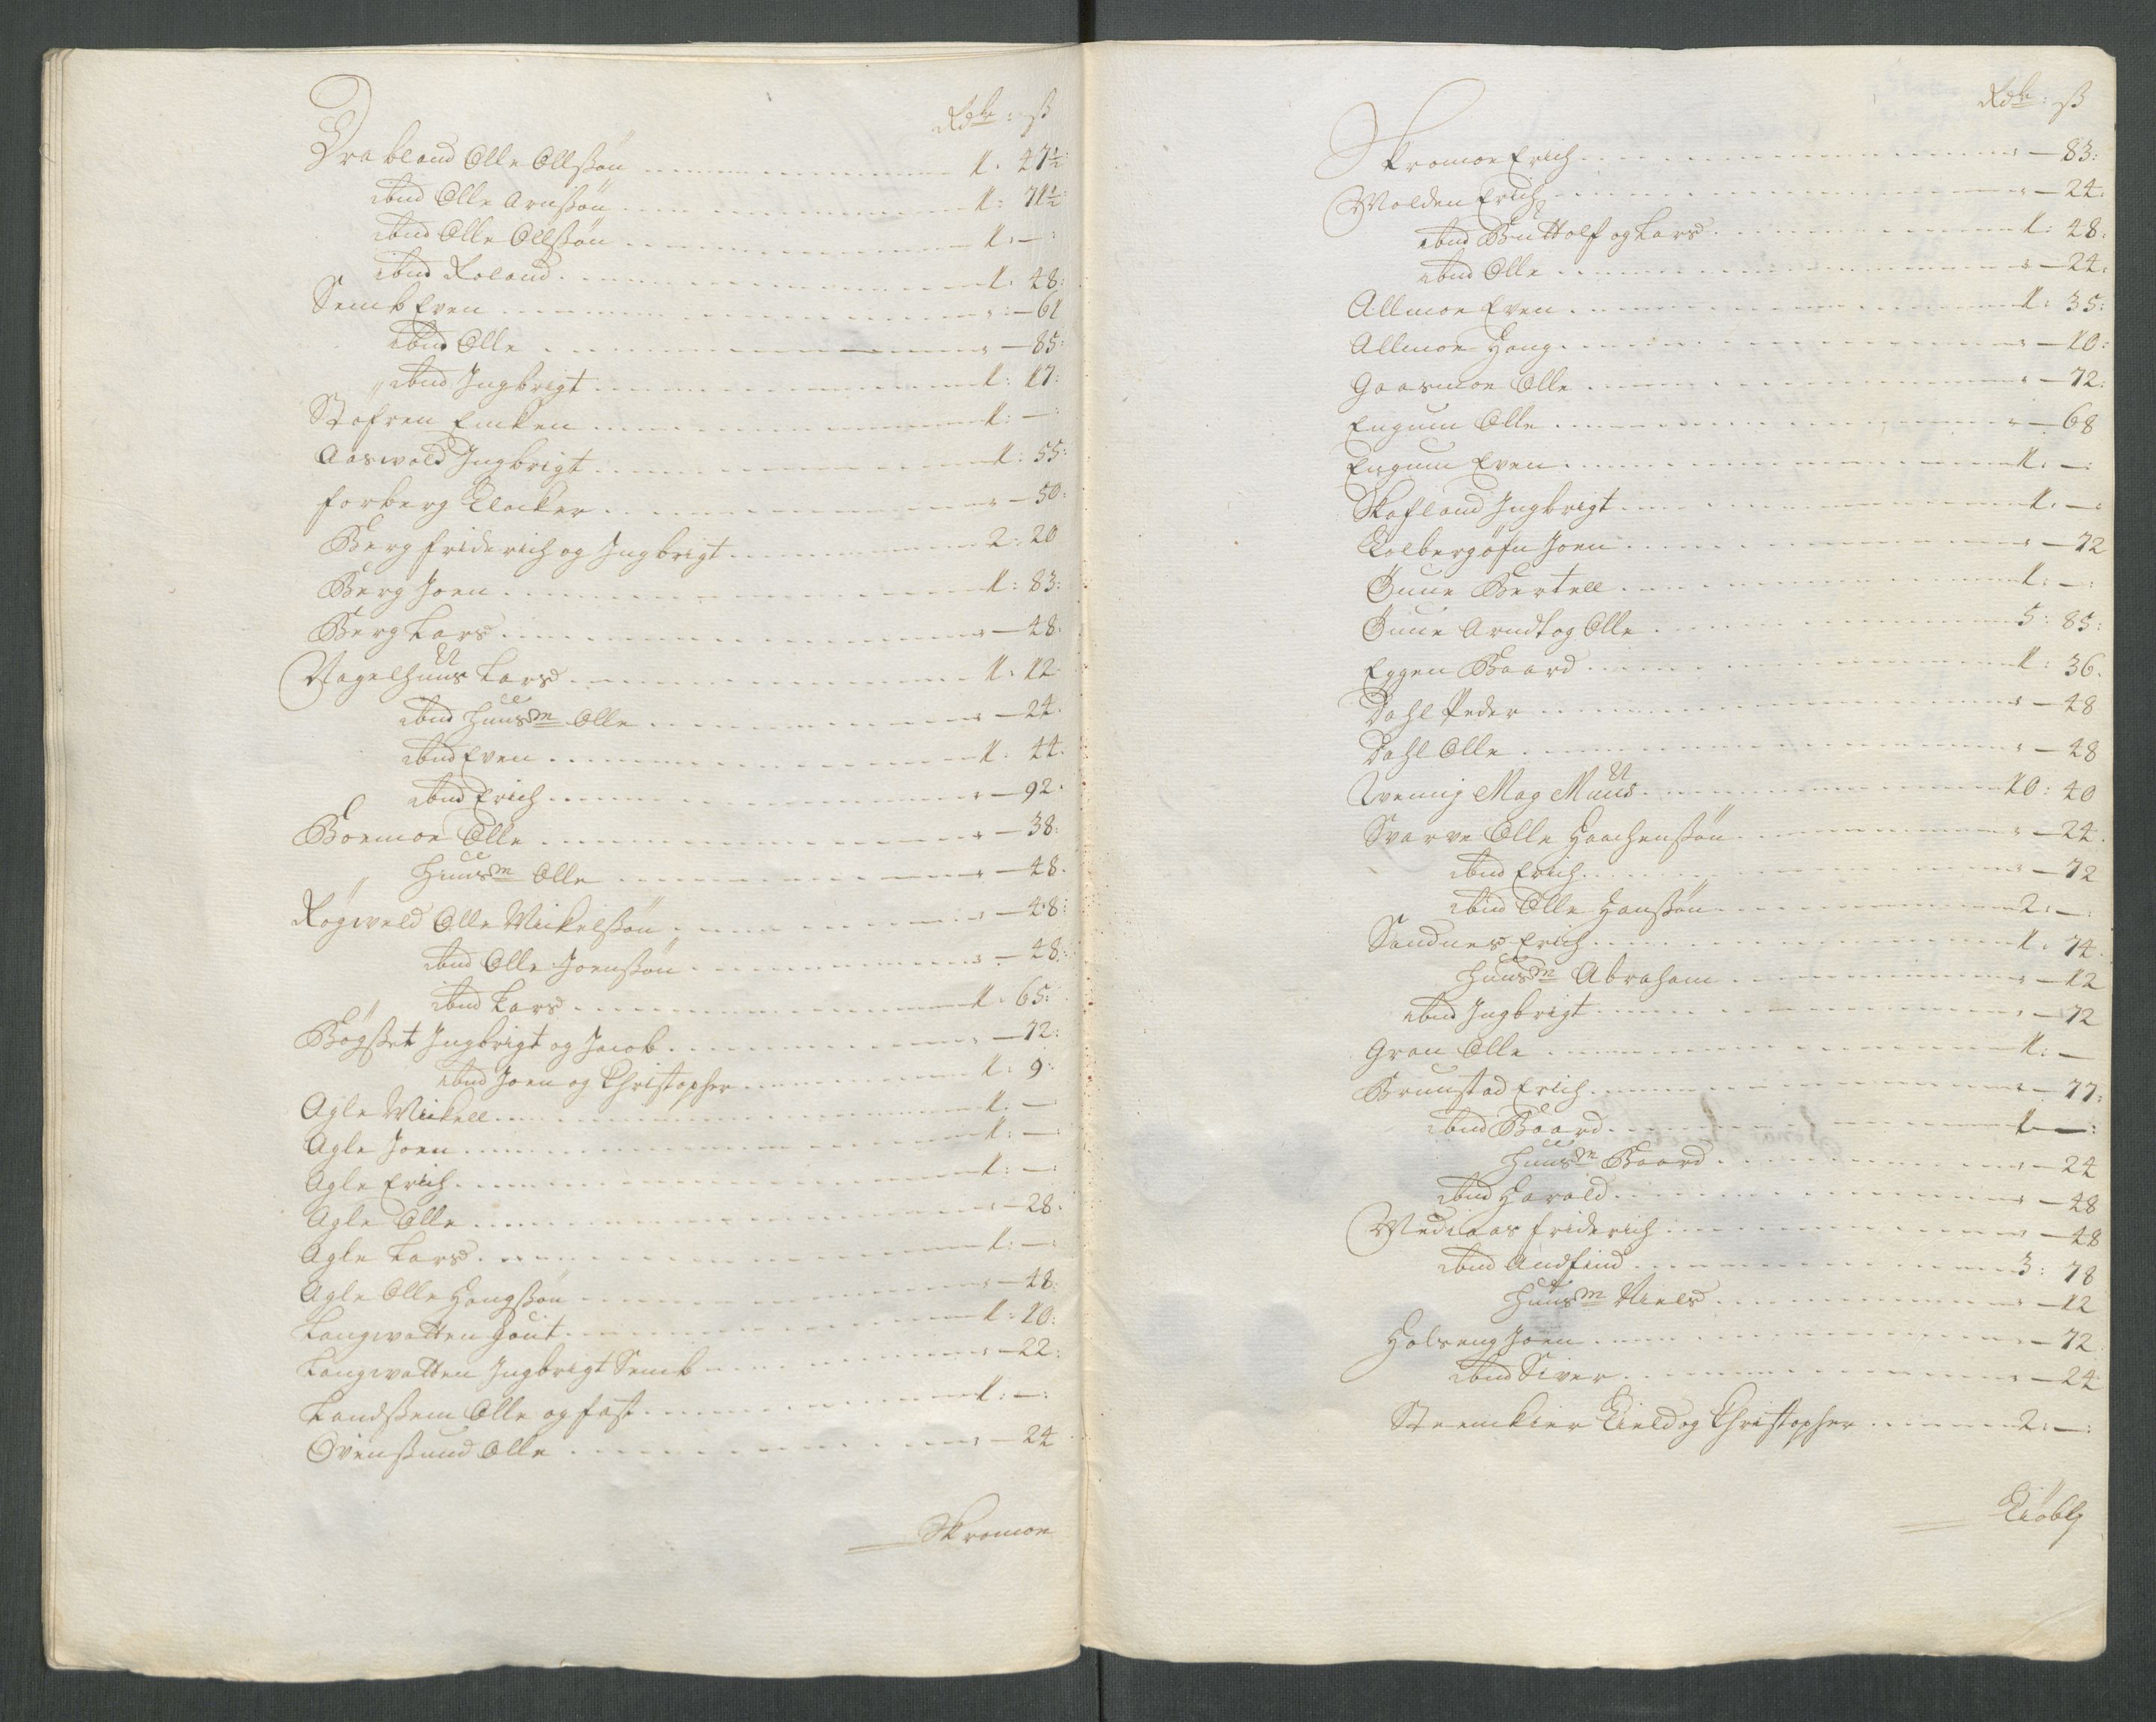 Rdlr : ß
Drabland Olle Ollßön 1. 47½
ibnd Olle Arnßön 1: 71½
ibnd Olle Ollßön 1: —:
ibnd Roland 1. 48:
Semb Even : — 61
ibnd Olle — 85:
ibnd Ingbrigt 1: 17:
Stafren Encken 1: —:
Aaswold Ingbrigt 1: 55:
forberg Elacker — 50:
Berg friderich og Ingbrigt 2: 20
Berg Joen 1: 83:
Berg Lars — 48.
Vagelhuus Lars 1. 12.
ibnd Huusm Olle — 24.
ibnd Even 1. 44.
ibnd Erich — 92.
Boemoe Olle — 38:
Huusm Olle — 48.
Rögweld Olle Mickelßön — 48:
ibnd Olle Joenßön — 48:
ibnd Lars 1. 65:
Bögßet Ingbrigt og Jacob — 72:
ibnd Joen og Christopher 1: 9:
Agle Mickell 1. —
Agle Joen 1: —:
Agle Erich 1: —:
Agle Olle — 28.
Agle Lars 1: —:
Agle Olle Hangßön — 48:
Langwatten Gout 1: 20:
Langwatten Ingbrigt Semb — 22:
Landßem Olle og fast 1: —:
Övinßund Olle — 24
Skromoe
Rdlr : ß
Skromoe Erich — 83:
Wolden Erich — 24.
ibnd Buttolf og Lars 1: 48.
ibnd Olle — 24:
Allmoe Even 1: 35:
Allmoe Hang — 10:
Gaasmoe Olle — 72:
Engum Olle — 68
Engum Even 1. —:
Skafland Ingbrigt 1. —:
Kolbergöfn Joen — 72
Guue Bertell 1: —:
Guue Arndt og Olle 5: 85:
Eggen Baard 1: 36.
Dahl Peder — 48
Dahl Olle — 48
Qvemij Mag Muus 10: 40
Svarve Olle Haachenßön — 24.
ibnd Erich — 72
ibid Olle Hanßön 2: —:
Sandnes Erich 1. 74.
Huusm Abraham — 12
ibnd Ingbrigt — 72
Gran Olle 1: —
Brunstad Erich — 77:
ibnd Baard 1 —:
Huusm Baard — 24
ibnd Harald — 48
Mediaas friderich — 48
ibnd Andfind 3: 78
Huusm Niels — 12
Holseng Joen — 72
ibnd Siver — 24
Steenkier Kield og Christopher 2: —:
Kiöblj